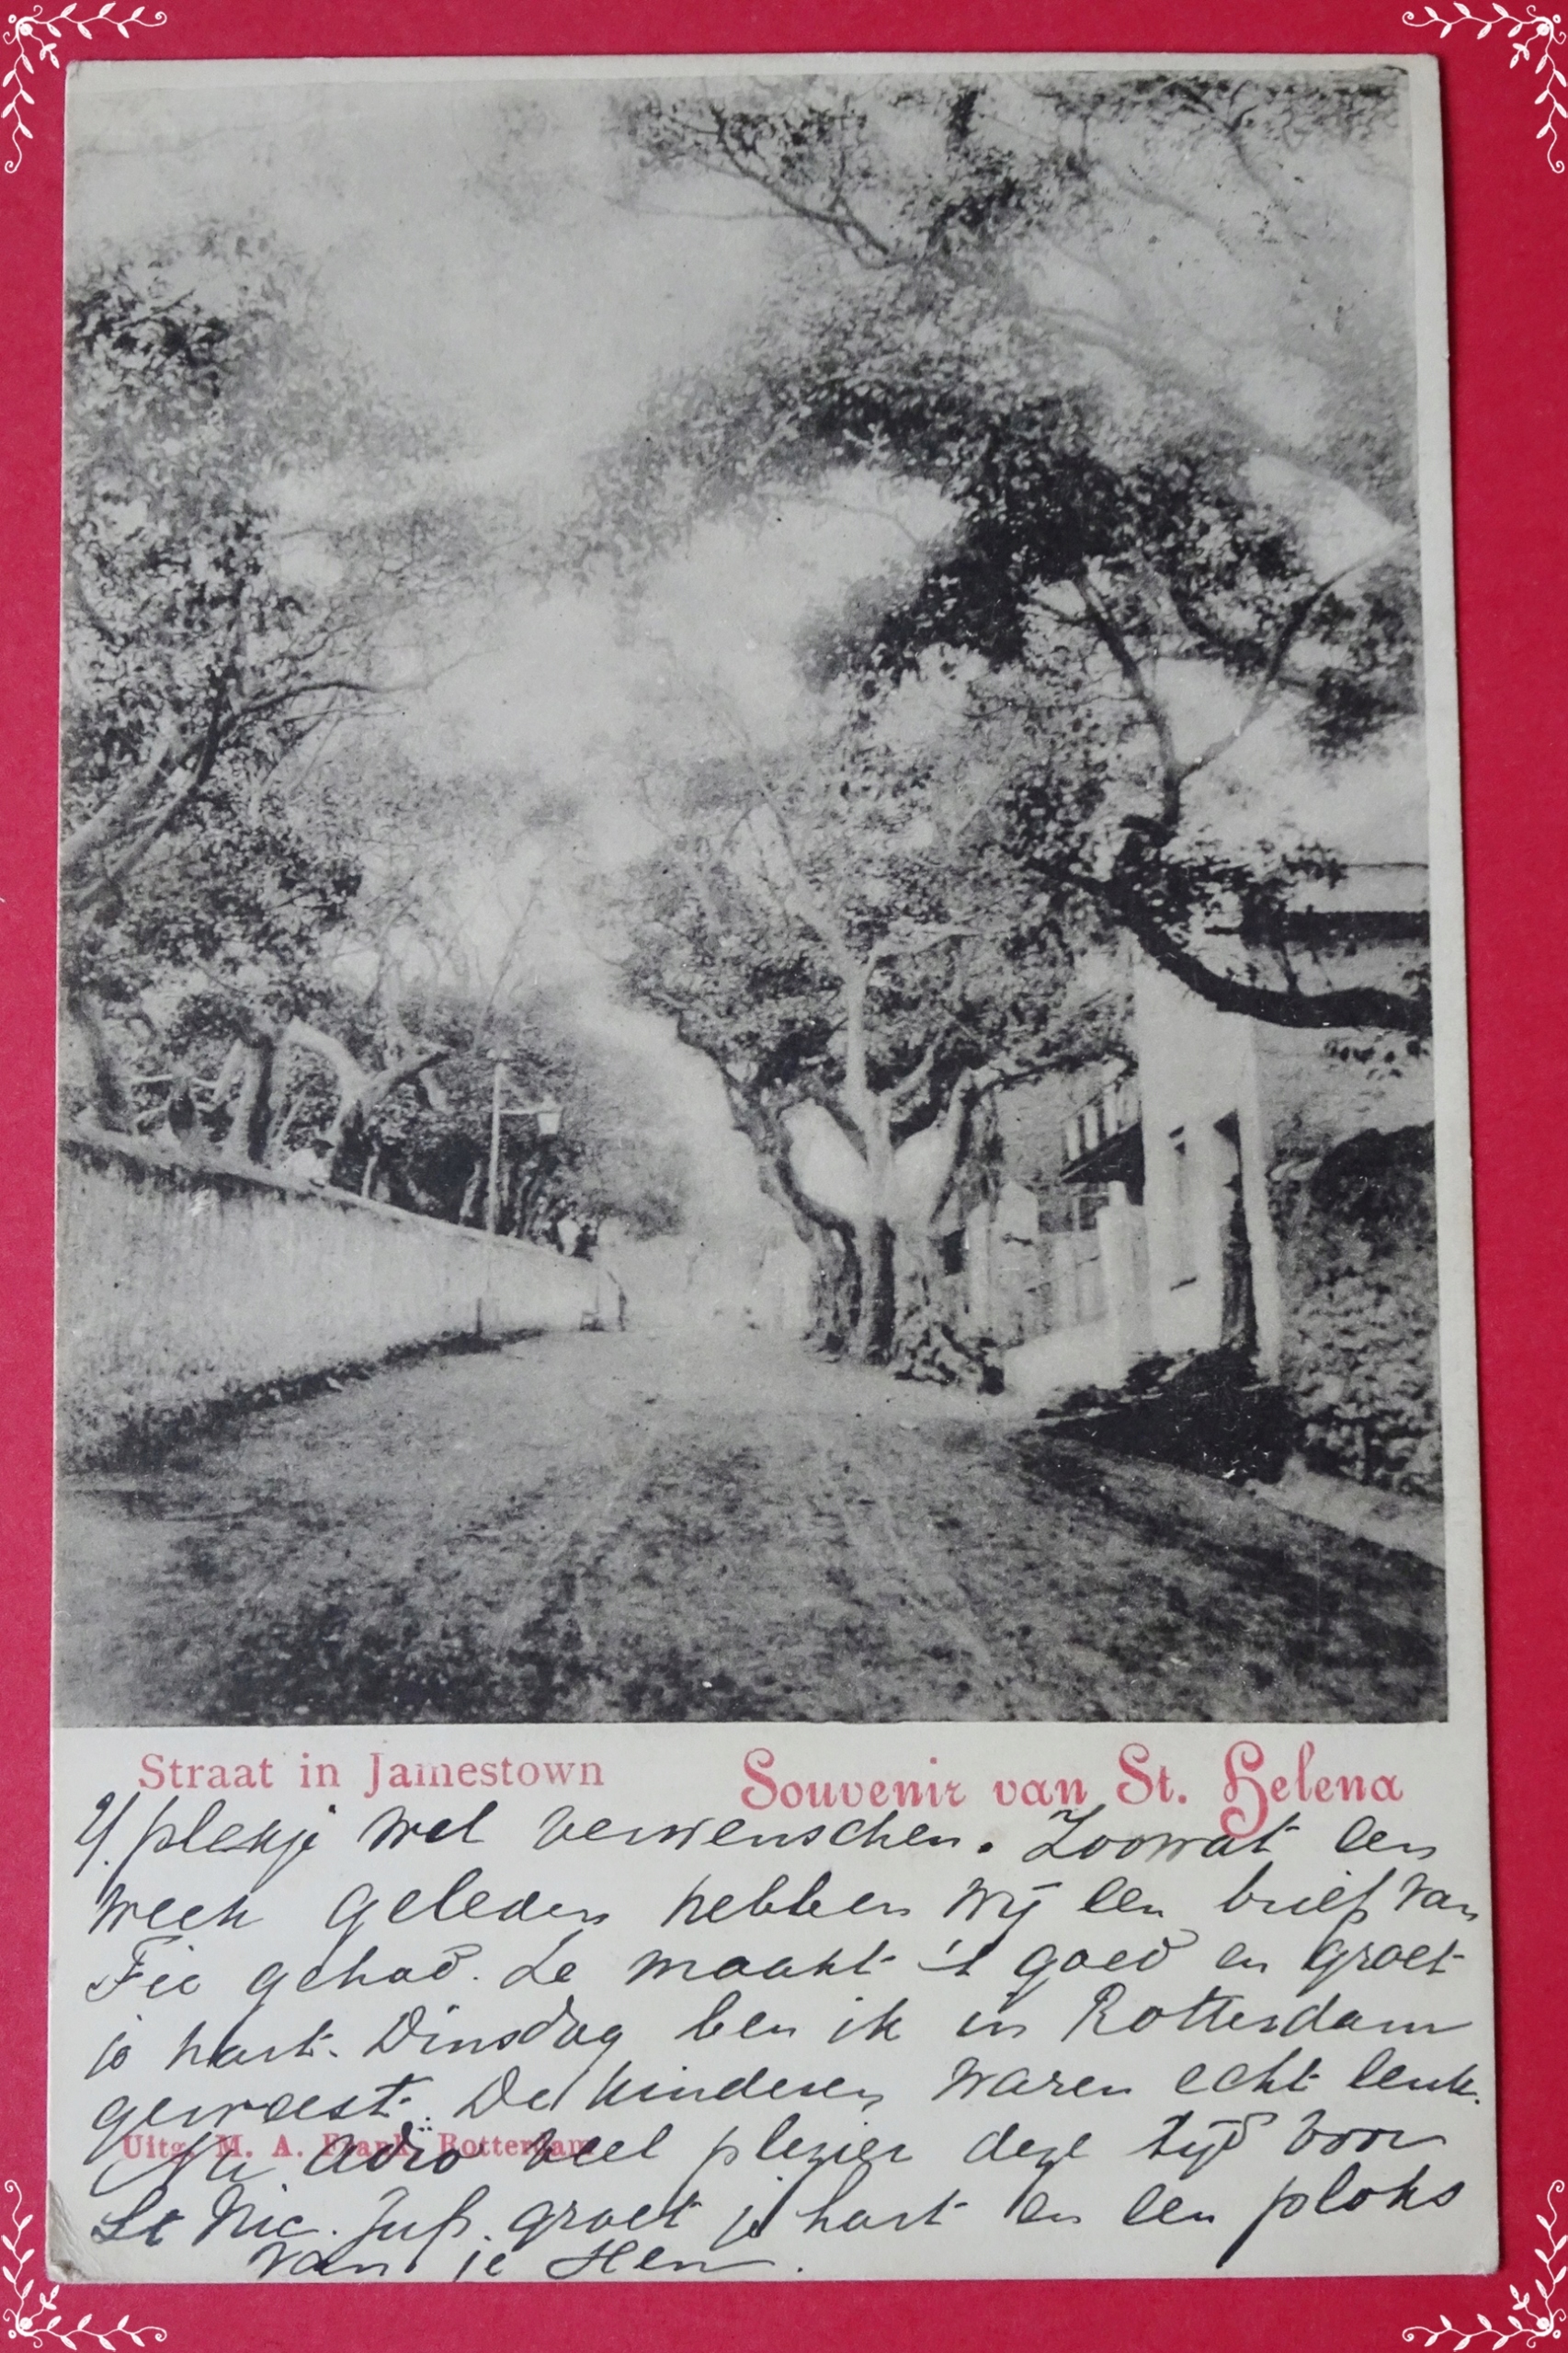 Straat in Jamestown
Souvenir van St. Helena
plekje wel verwenschen. Zoowat een
week geleden hebben wij een brief van
Fie gehad. Ze maakt 't goed en groet
je hart. Dinsdag ben ik in Rotterdam
geweest. De kinderen waren echt leuk.
Uitg. M. A. Frank, Rotterdam
Nu adio veel plezier deze tijd voor
St Nic. Juf. groet je hart en een
van je Hen.